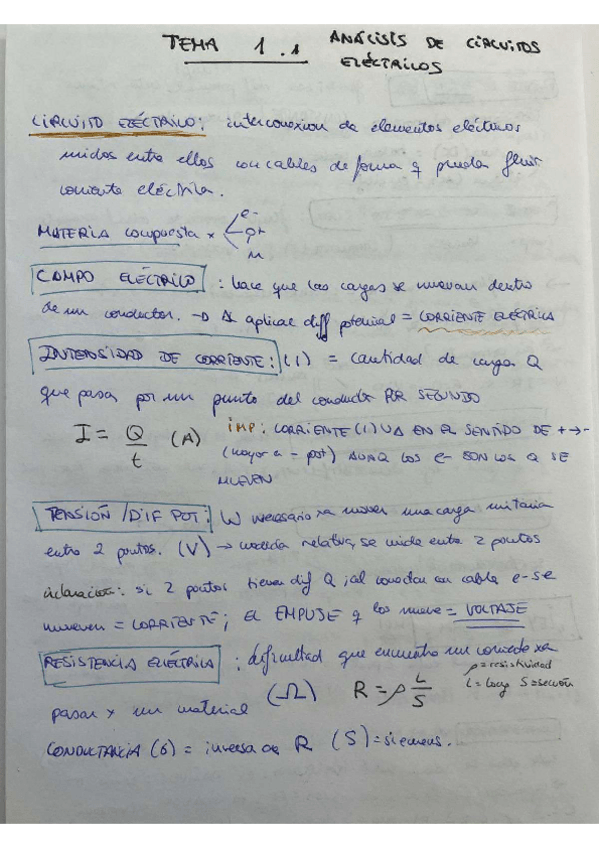 TEMA 1.1 ANÁLISIS DE CIRCUITOS
ELÉCTRICOS
CIRCUITO ELÉCTRICO: interconexion de elementos eléctricos
unidos entre ellos con cables de forma q pueda fluir
corriente eléctrica.
MATERIA compuesta x e-
p+
n
CAMPO ELÉCTRICO : hace que las cargas se muevan dentro
de un conductor. → aplicar diff potencial = CORRIENTE ELÉCTRICA
INTENSIDAD DE CORRIENTE: (I) = cantidad de carga Q
que pasa por un punto del conductor POR SEGUNDO
I = Q/t (A) IMP: CORRIENTE (I) VA EN EL SENTIDO DE + → -
(mayor a - pot) AUNQ LOS e- SON LOS Q SE
MUEVEN
TENSIÓN / DIF POT: W necesario xa mover una carga unitaria
entre 2 puntos. (V) → medida relativa, se mide entre 2 puntos
aclaracion: si 2 puntos tienen dif Q, al conectar un cable e- se
mueven = CORRIENTE; EL EMPUJE q los mueve = VOLTAJE
RESISTENCIA ELÉCTRICA : dificultad que encuentra una corriente xa
ρ = resistividad
pasar x un material (Ω) R = ρ L/S L = long S = sección
CONDUCTANCIA (G) = inversa de R (S) = siemens.